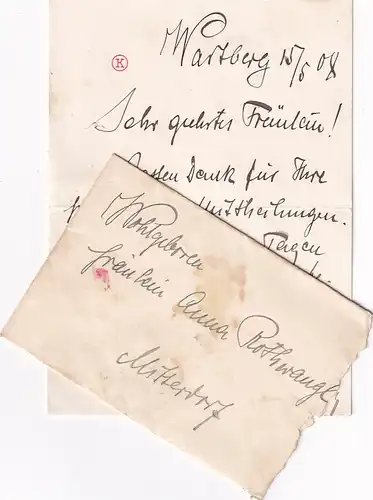 Wartberg 15/5 08
K
Sehr geehrtes Fräulein!
Besten Dank für Ihre
Mittheilungen.
Tagen
Wohlgeboren
Fräulein Anna Rothwangl
Mitterdorf